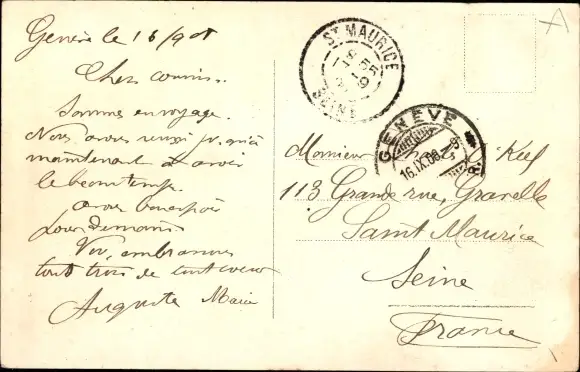 Genève le 16/9 08
Chers cousins.
Sommes en voyage.
Nous avons réussi jusqu'à
maintenant à avoir
le beau temps.
avons bon espoir
pour demain
Vous embrassons
tout trois de tout coeur
Auguste Marie
ST MAURICE
SEINE
GENÈVE
16.IX.08
Monsieur Kief
113 Grande rue, Gravelle
Saint Maurice
Seine
France